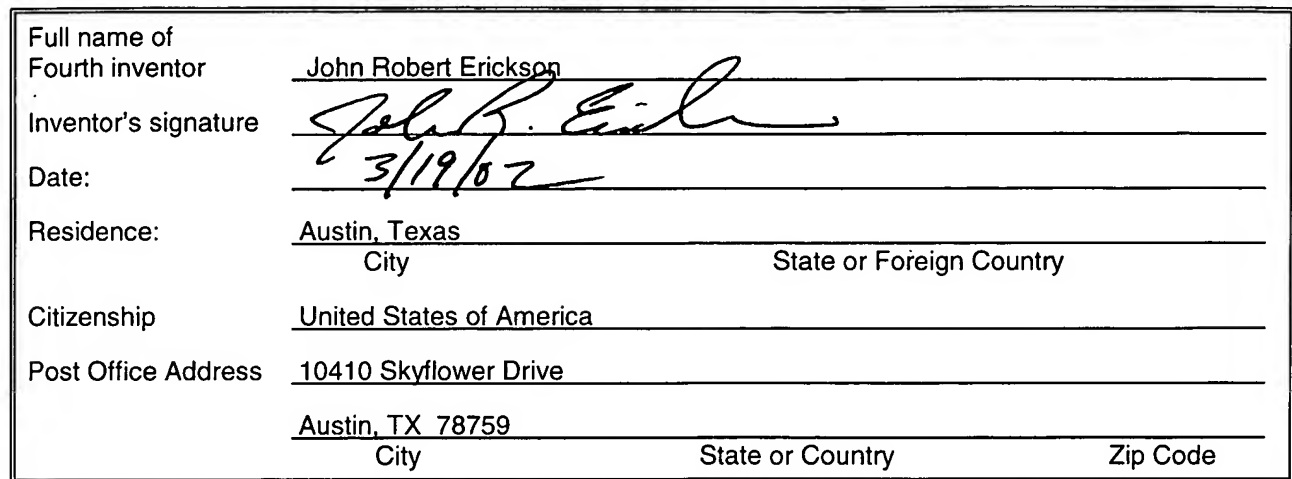 Full name of
Fourth inventor John Robert Erickson
Inventor's signature John R. Erickson
Date: 3/19/02
Residence: Austin, Texas
City State or Foreign Country
Citizenship United States of America
Post Office Address 10410 Skyflower Drive
Austin, TX 78759
City State or Country Zip Code